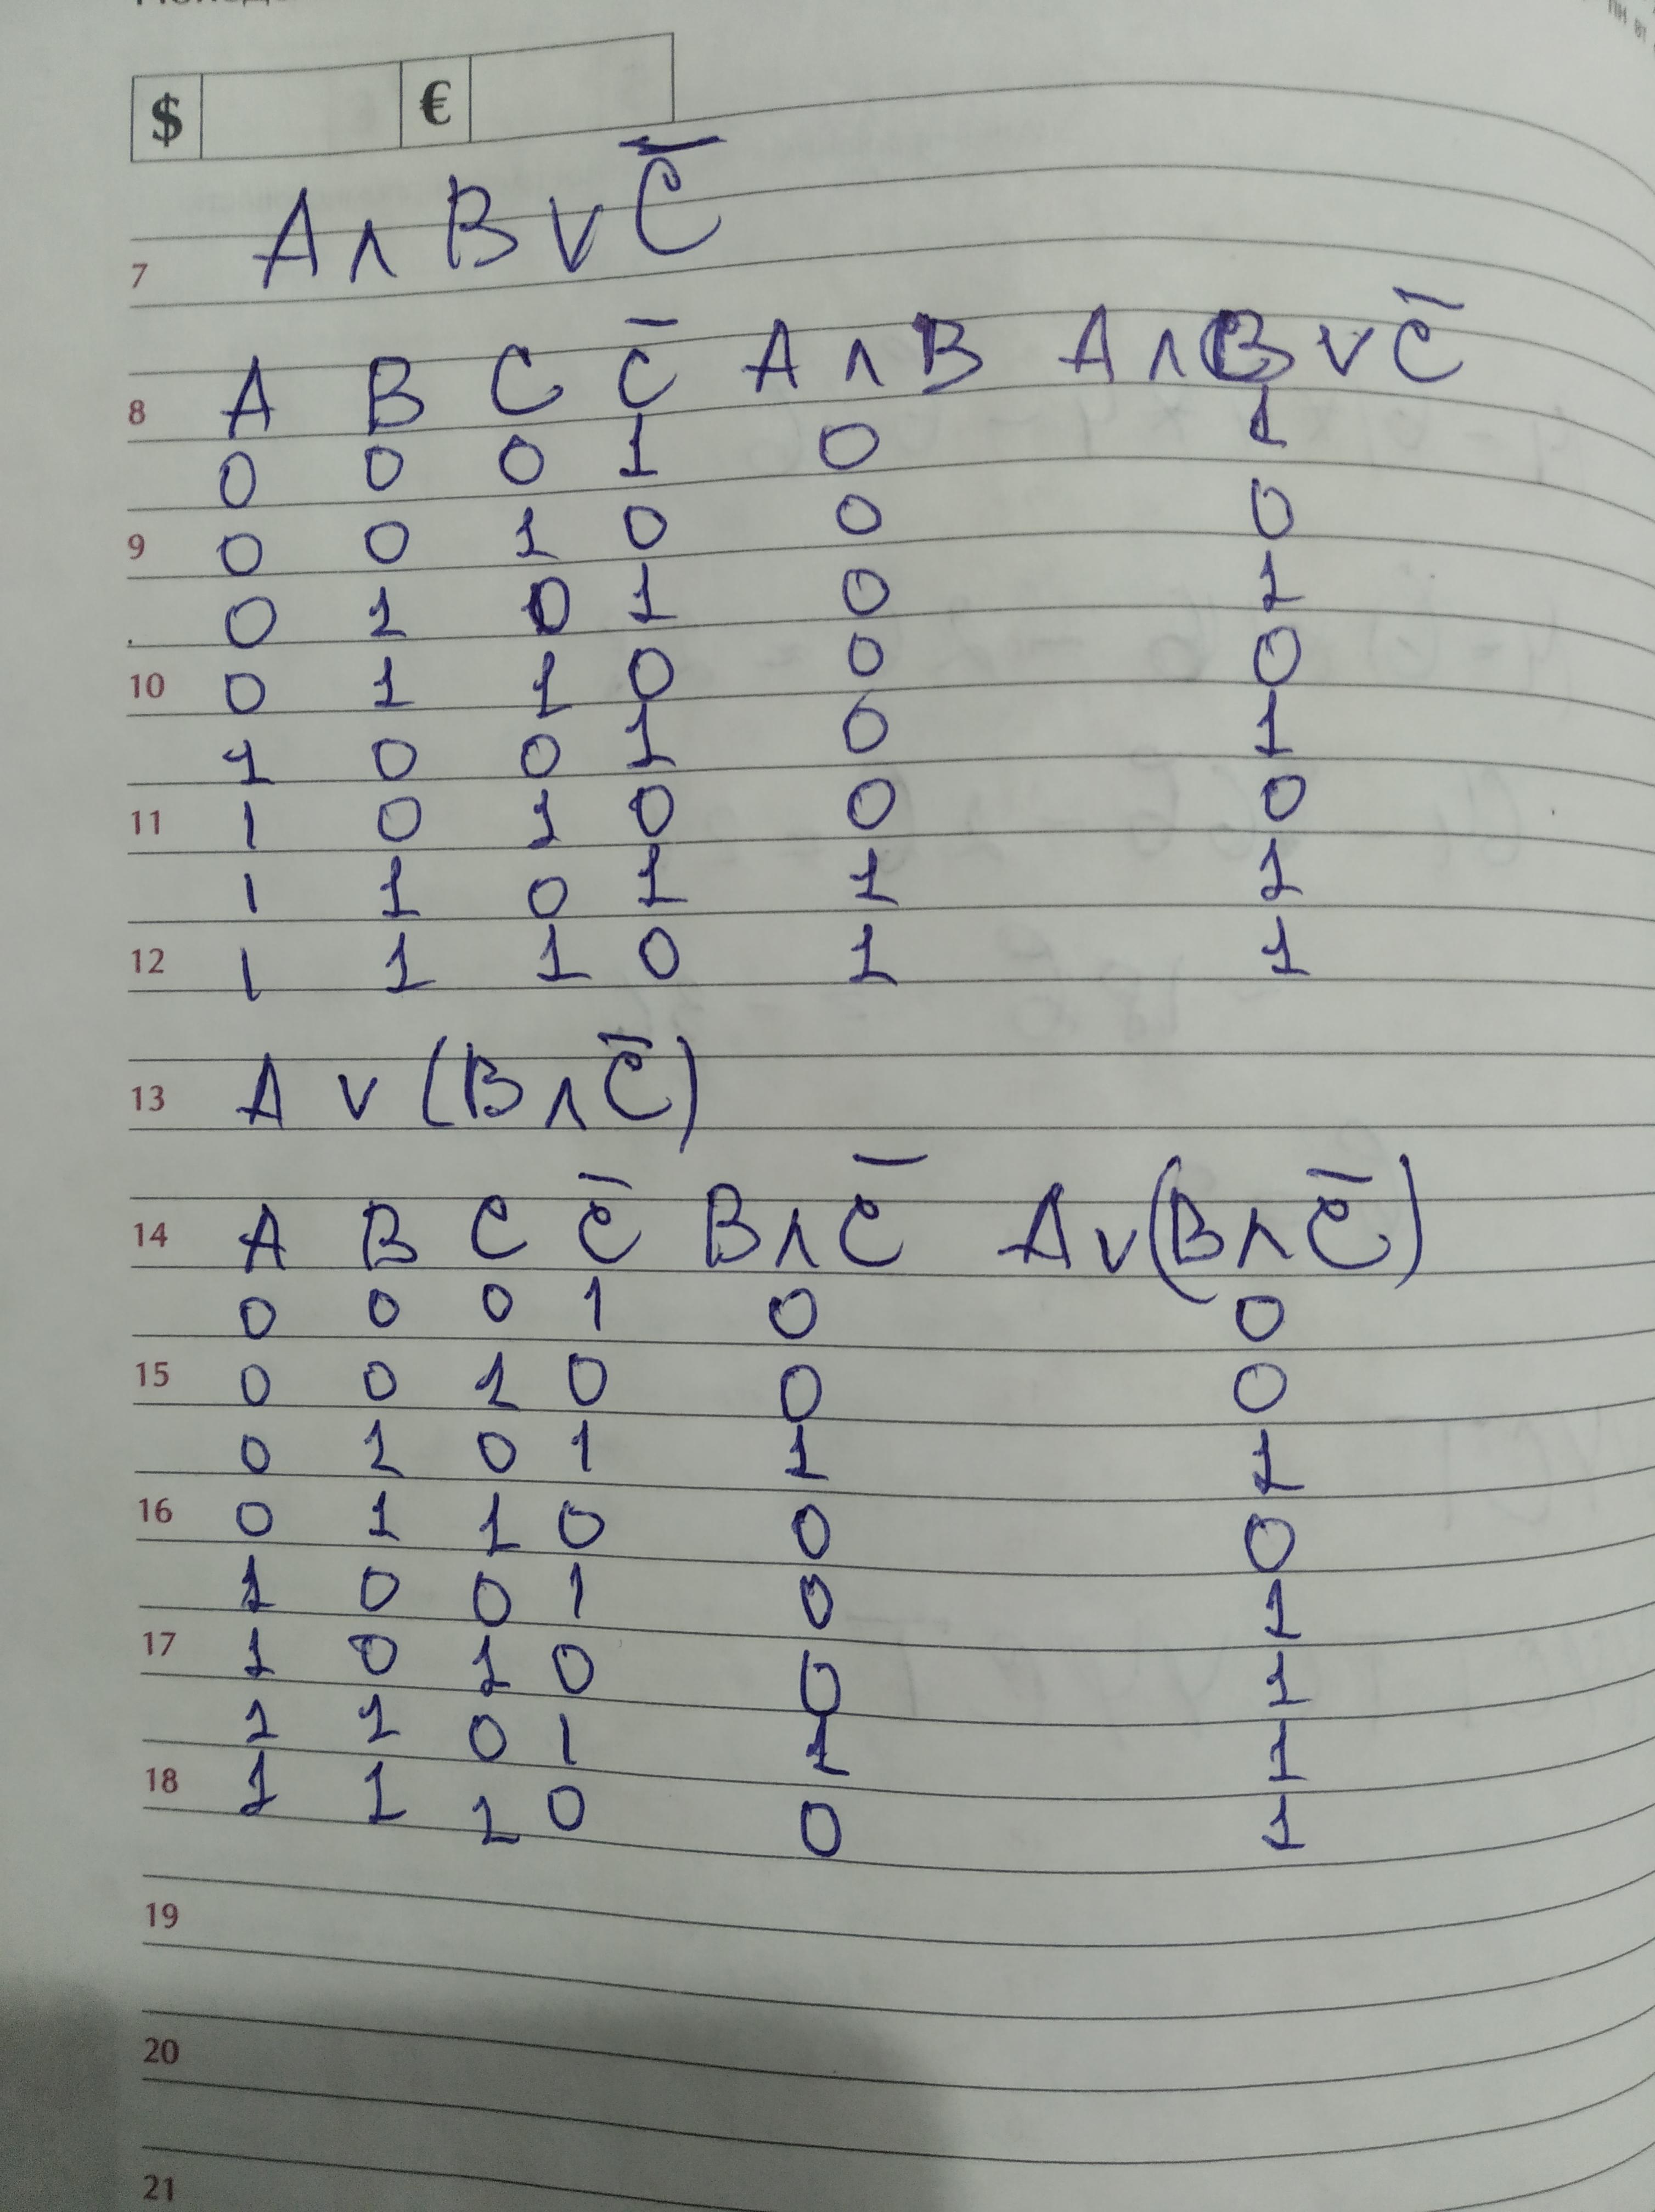 $ €
7 A ∧ B ∨ C̅
8 A B C C̅ A ∧ B A ∧ B ∨ C̅
0 0 0 1 0 1
9 0 0 1 0 0 0
0 1 0 1 0 1
10 0 1 1 0 0 0
1 0 0 1 0 1
11 1 0 1 0 0 0
1 1 0 1 1 1
12 1 1 1 0 1 1
13 A ∨ (B ∧ C̅)
14 A B C C̅ B ∧ C̅ A ∨ (B ∧ C̅)
0 0 0 1 0 0
15 0 0 1 0 0 0
0 1 0 1 1 1
16 0 1 1 0 0 0
1 0 0 1 0 1
17 1 0 1 0 0 1
1 1 0 1 1 1
18 1 1 1 0 0 1
19
20
21